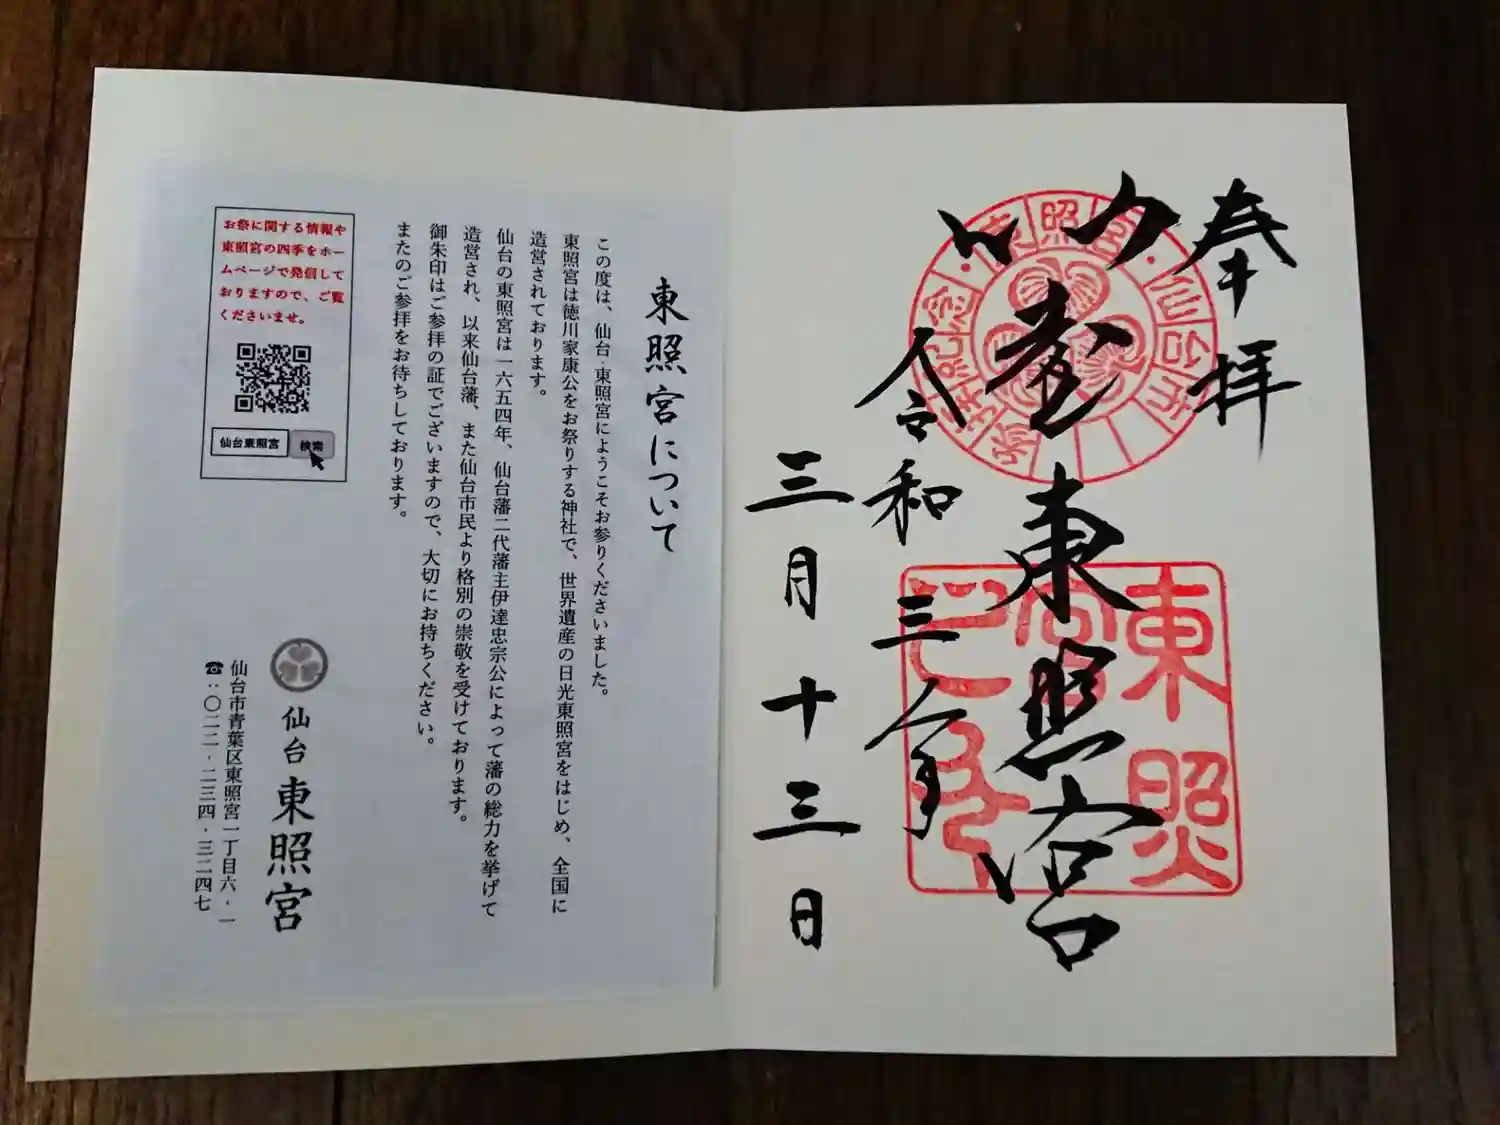 奉拝
仙臺東照宮
令和三年
三月十三日
東照宮
東照宮・仙台市
参拝記念
東照宮について
この度は、仙台・東照宮にようこそお参りくださいました。
東照宮は徳川家康公をお祭りする神社で、世界遺産の日光東照宮をはじめ、全国に
造営されております。
仙台の東照宮は一六五四年、仙台藩二代藩主伊達忠宗公によって藩の総力を挙げて
造営され、以来仙台藩、また仙台市民より格別の崇敬を受けております。
御朱印はご参拝の証でございますので、大切にお持ちください。
またのご参拝をお待ちしております。
お祭に関する情報や
東照宮の四季をホー
ムページで発信して
おりますので、ご覧
くださいませ。
仙台東照宮 検索
仙台 東照宮
仙台市青葉区東照宮一丁目六-一
☎:〇二二-二三四-三二四七